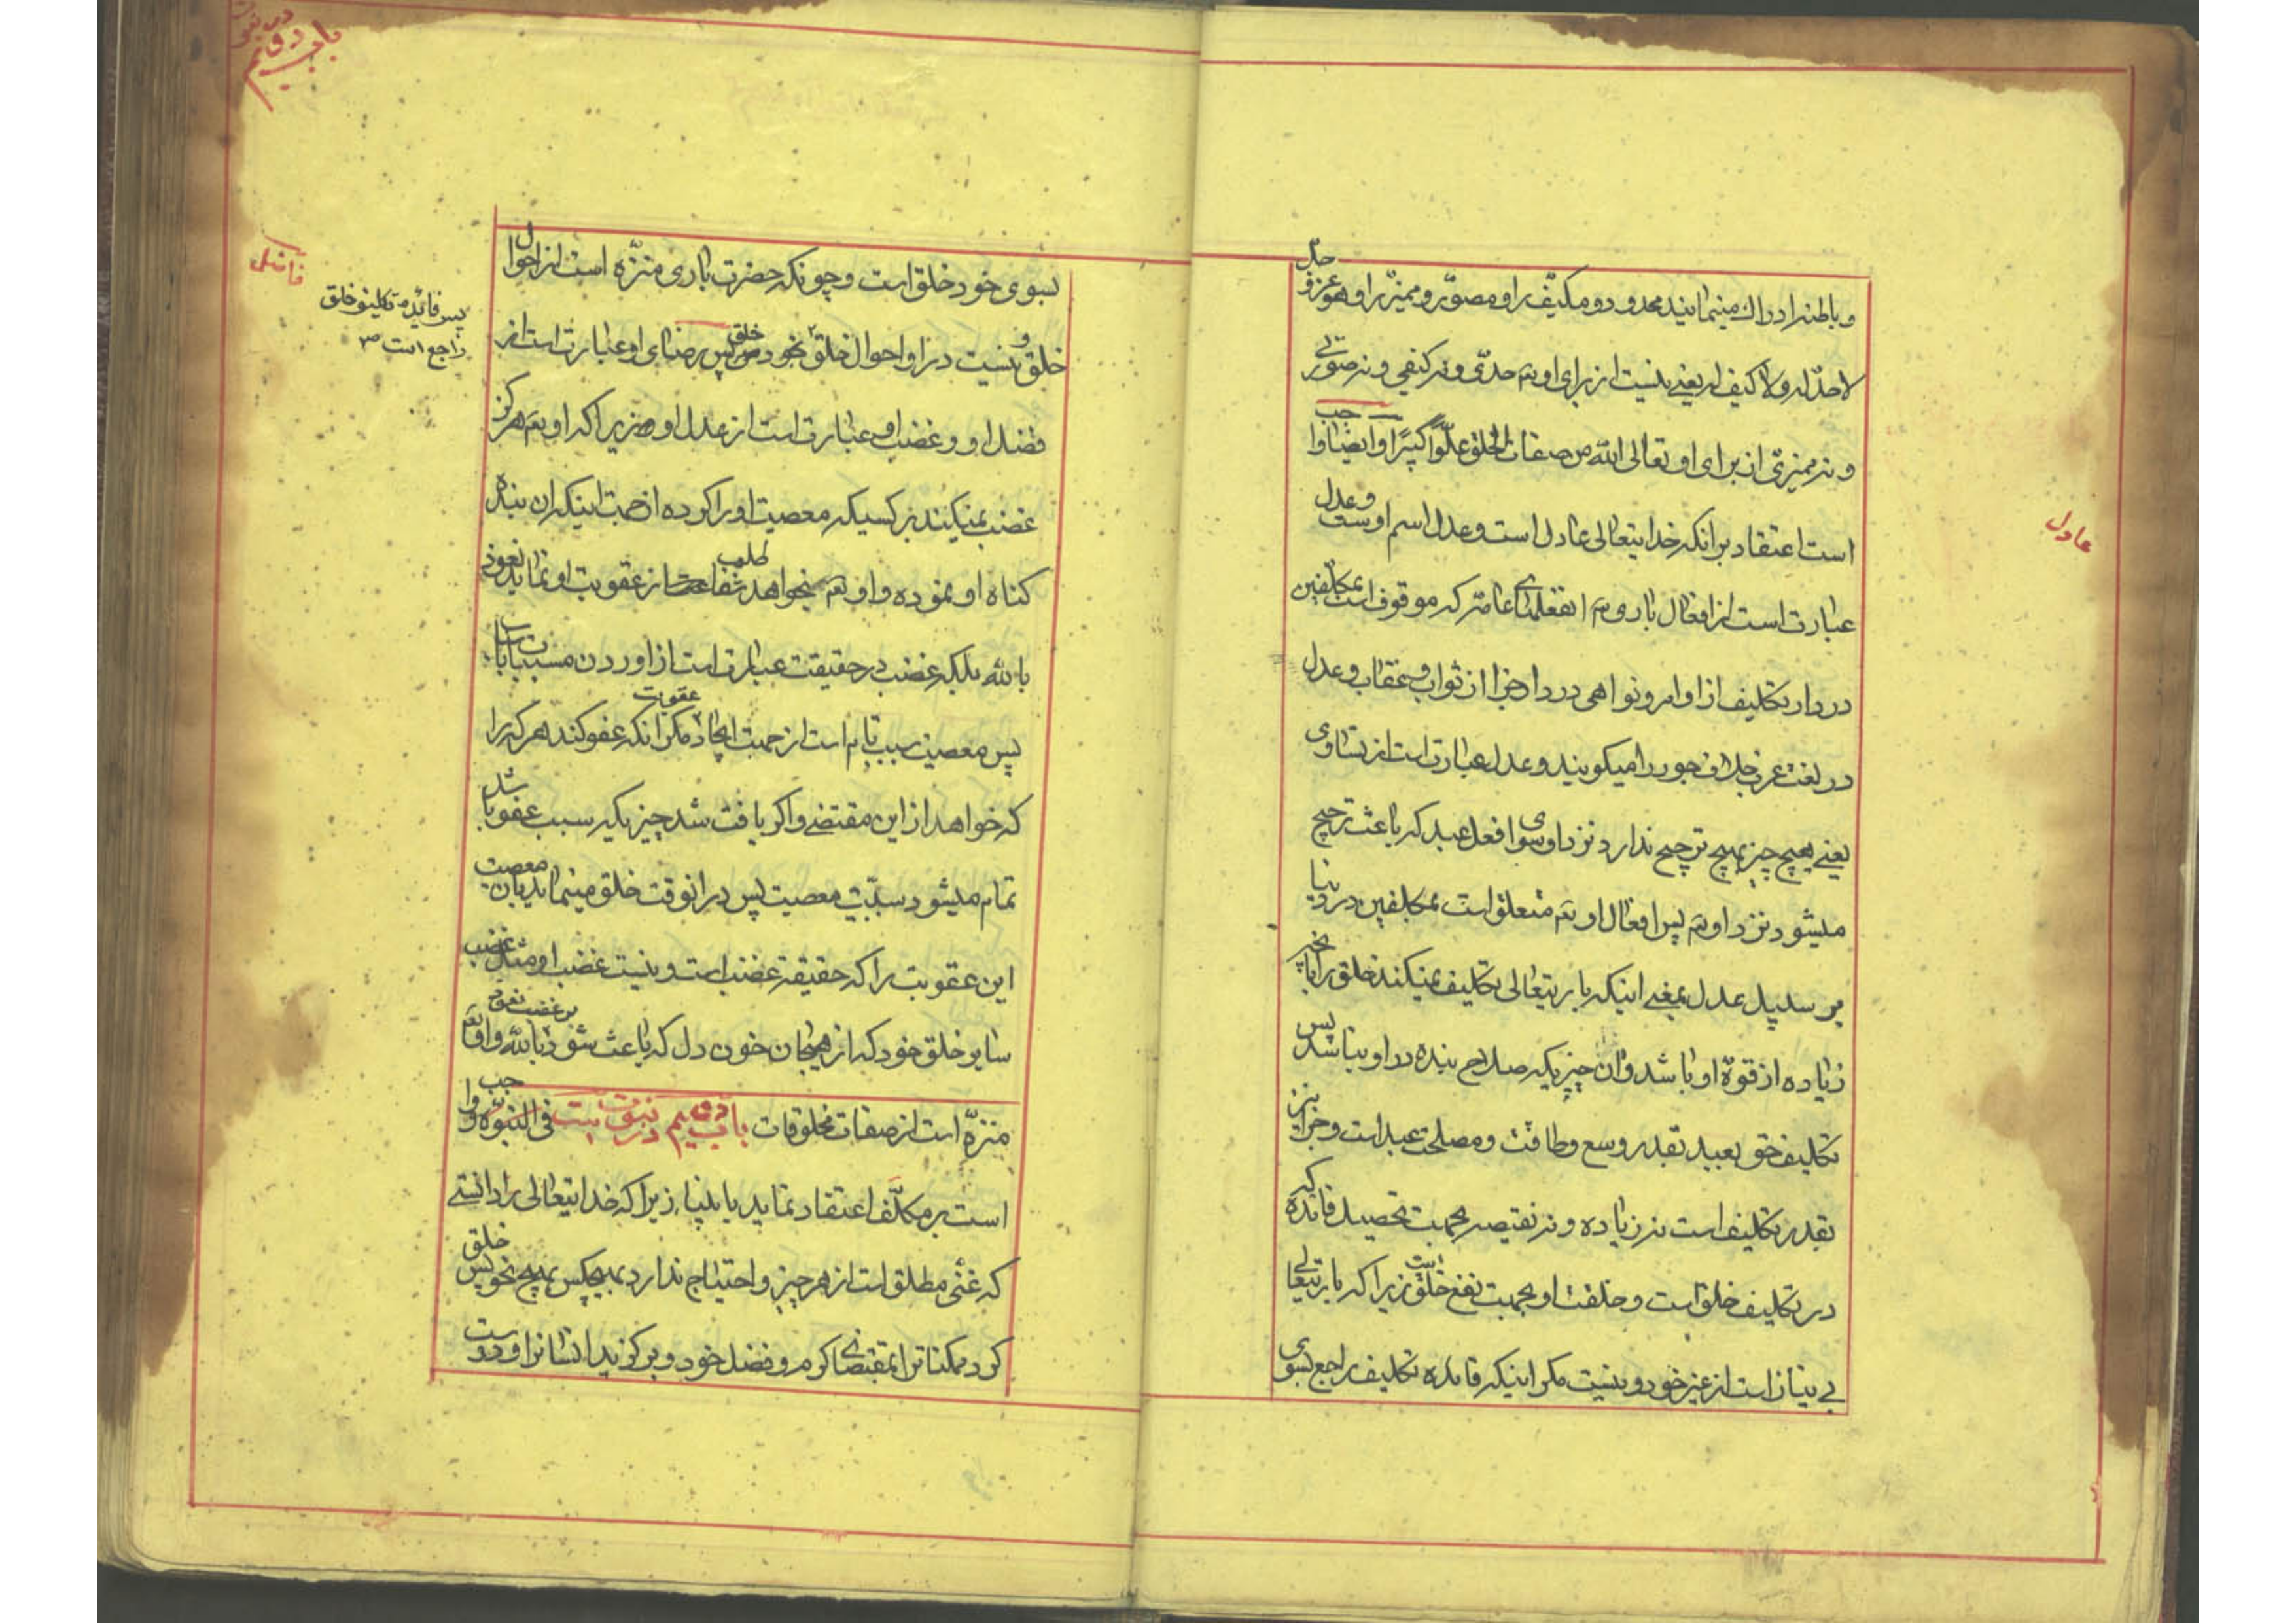 و باطنرا ادراك مینمایند محدود و مکیّف را و مصوّر و ممیّز را و هو عزّ و جلّ
لا حدّ له و لا کیف له یعنی نیست از برای او تع حدّی و نه کیفی و نه صورتی
و نه ممیزی از برای او تعالی الله من صفات الخلق علوّاً کبیراً و ایضاً واجب
است اعتقاد بر آنکه خدایتعالی عادل است و عدل اسم اوست و عدل
عبارت است از افعال باری تع عامّه که موقوف است بمکلّفین
در دار تکلیف از اوامر و نواهی در دار جزا از ثواب و عقاب و عدل
در لغت عرب خلاف جور را میگویند و عدل عبارت است از تساوی
یعنی هیچ چیز بهیچ ترجیح ندارد نزد او سوای فعل عبد که باعث ترجیح
میشود نزد او تع پس افعال او تع متعلق است بمکلفین در دنیا
بر سبیل عدل بمعنی اینکه باریتعالی تکلیف نمیکند خلق را بآنچه
زیاده از قوة او باشد و آن چیزیکه صلاح بنده در او نباشد پس
تکلیف حق بعبید بقدر وسع و طاقت و مصلحت عبد است و جزا نیز
بقدر تکلیف است نه زیاده و نه نقیصه بجهت تحصیل فائده که
در تکلیف خلق است و خلقت او بجهت نفع خلق است زیرا که باریتعالی
بی نیاز است از غیر خود و نیست مگر اینکه فائده تکلیف راجع بسوی
عادل
بسوی خود خلق است و چونکه حضرت باری منزّه است از احوال
خلق و نیست در او احوال خلق پس رضای او عبارت است از
فضل او و غضب او عبارت است از عدل او زیرا که او تع هرگز
غضب نمیکند بر کسیکه معصیت او را کرده از جهت اینکه آن بنده
گناه او نموده و او تع میخواهد طلب از عقوبت او نماید نعوذ
بالله بلکه غضب در حقیقت عبارت است از آوردن مسببات باسباب
پس معصیت سبب تام است از جهت ایجاد عقوبت مگر آنکه عفو کند هر که را
که خواهد از این مقتضی و اگر یافت شد چیزیکه سبب عفو باشد
تمام میشود سببیّت معصیت پس در آنوقت خلق مینماید بآن معصیت
این عقوبت را که حقیقة غضب است و نیست غضب او مثل غضب
سایر خلق خود که از هیجان خون دل که باعث شود بر غضب نعوذ بالله و او تع
منزّه است از صفات مخلوقات باب دویم در نبوّت است فی النبوّه واجب
است بر مکلّف اعتقاد نماید بانبیاء زیرا که خدایتعالی را دانستی
که غنی مطلق است از هر چیز و احتیاج ندارد بهیچکس بهیچ نحو پس خلق
کرد ممکنات را بمقتضای کرم و فضل خود و برگزید ایشانرا و دوست
پس فائده تکلیف خلق
راجع است ص
باب دویم در نبوت